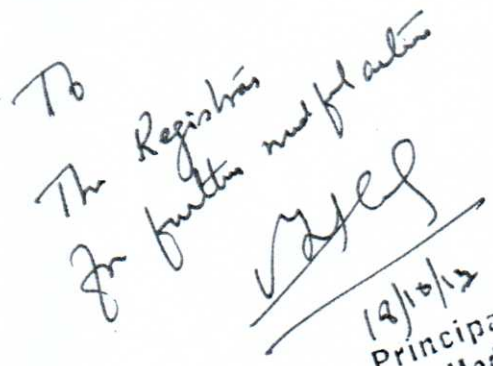 To
The Registrar
For further needful action
18/10/13
Principa